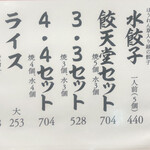 ほうれん草入り緑の餃子
水餃子
一人前(5個)
440
餃天堂セット
焼5個、水5個
704
3・3セット
焼3個、水3個
528
4・4セット
焼4個、水4個
704
ライス
大
253